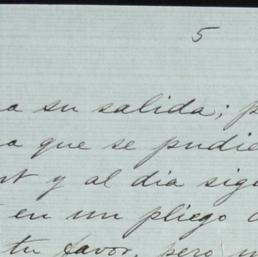 5
a su salida; p
a que se pudie
t y al dia sigu
en un pliego
tu favor, pero